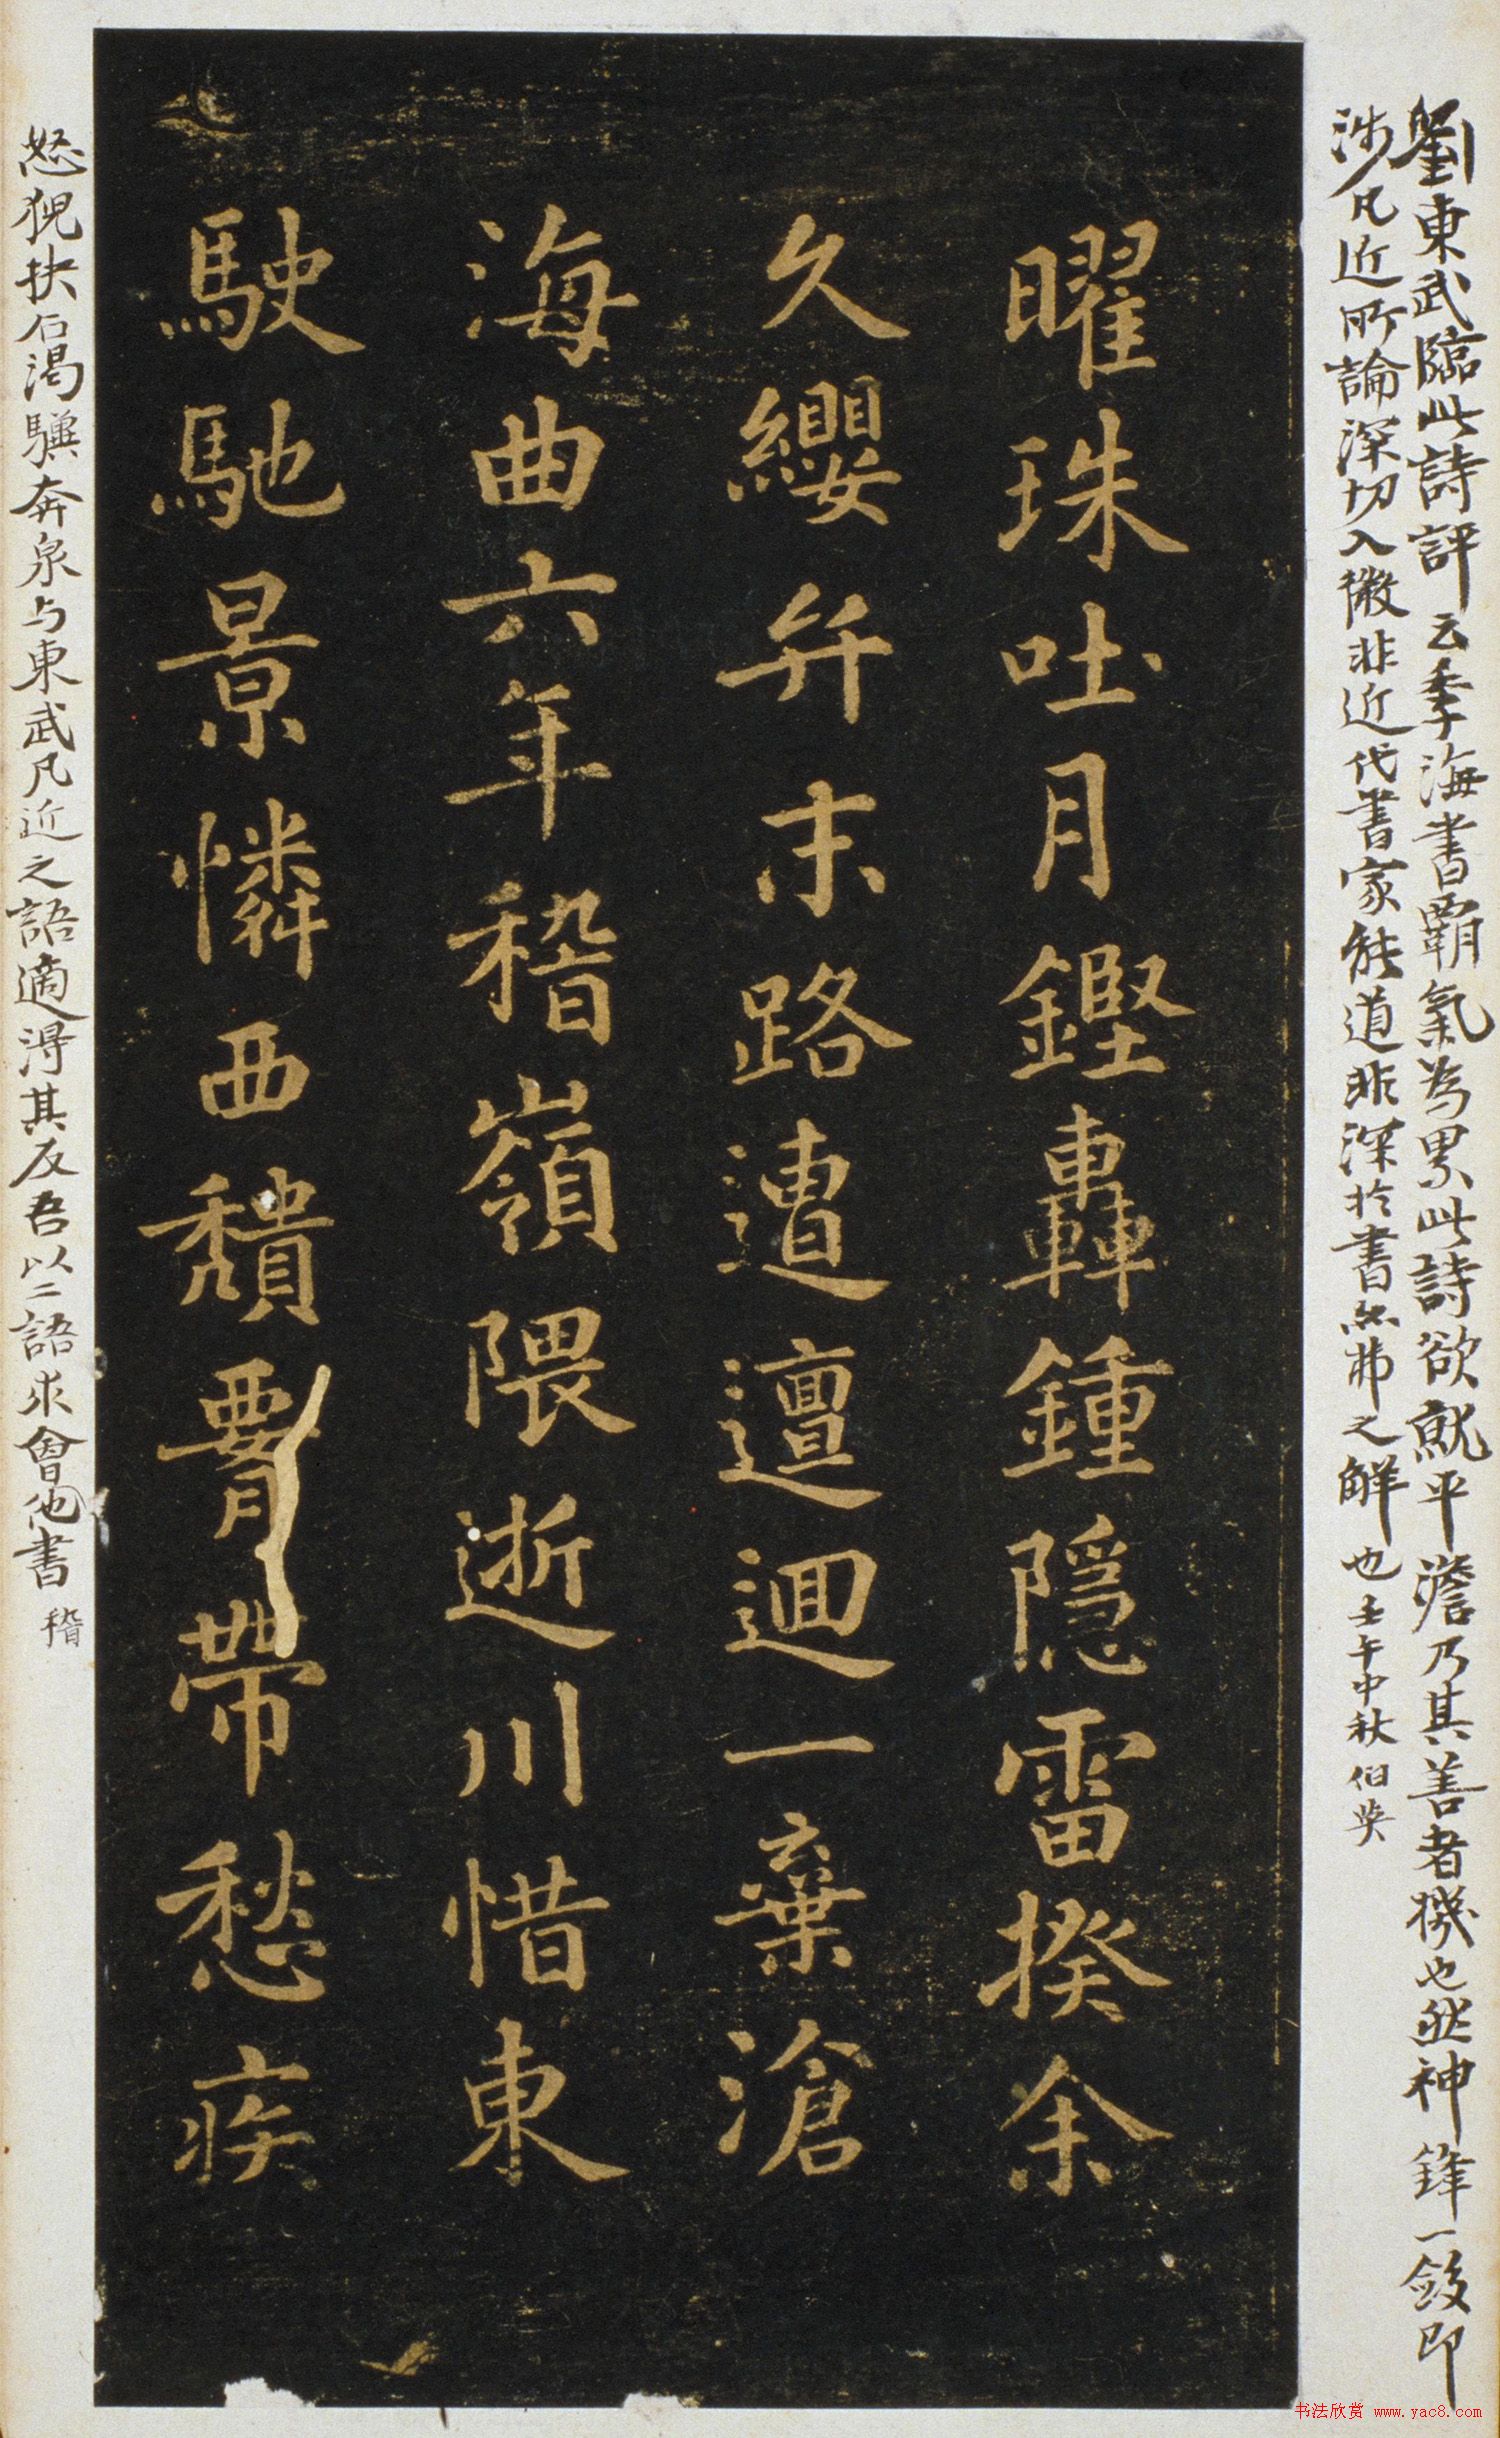 劉東武臨此詩評云季海書霸氣為累此詩欲就平澹乃其善者機也然神鋒一斂即
涉凡近所論深切入微非近代書家能道非深於書亦弗之解也壬午中秋伯吳
曜珠吐月鏗轟鍾隱雷揆余
久纓弁末路遭邅迴一棄滄
海曲六年稽嶺隈逝川惜東
駛馳景憐西穨腰帶愁疾
怒猊抉石渴驥奔泉与東武凡近之語適得其反吾以二語求會他書 稽
书法欣赏 www.yac8.com